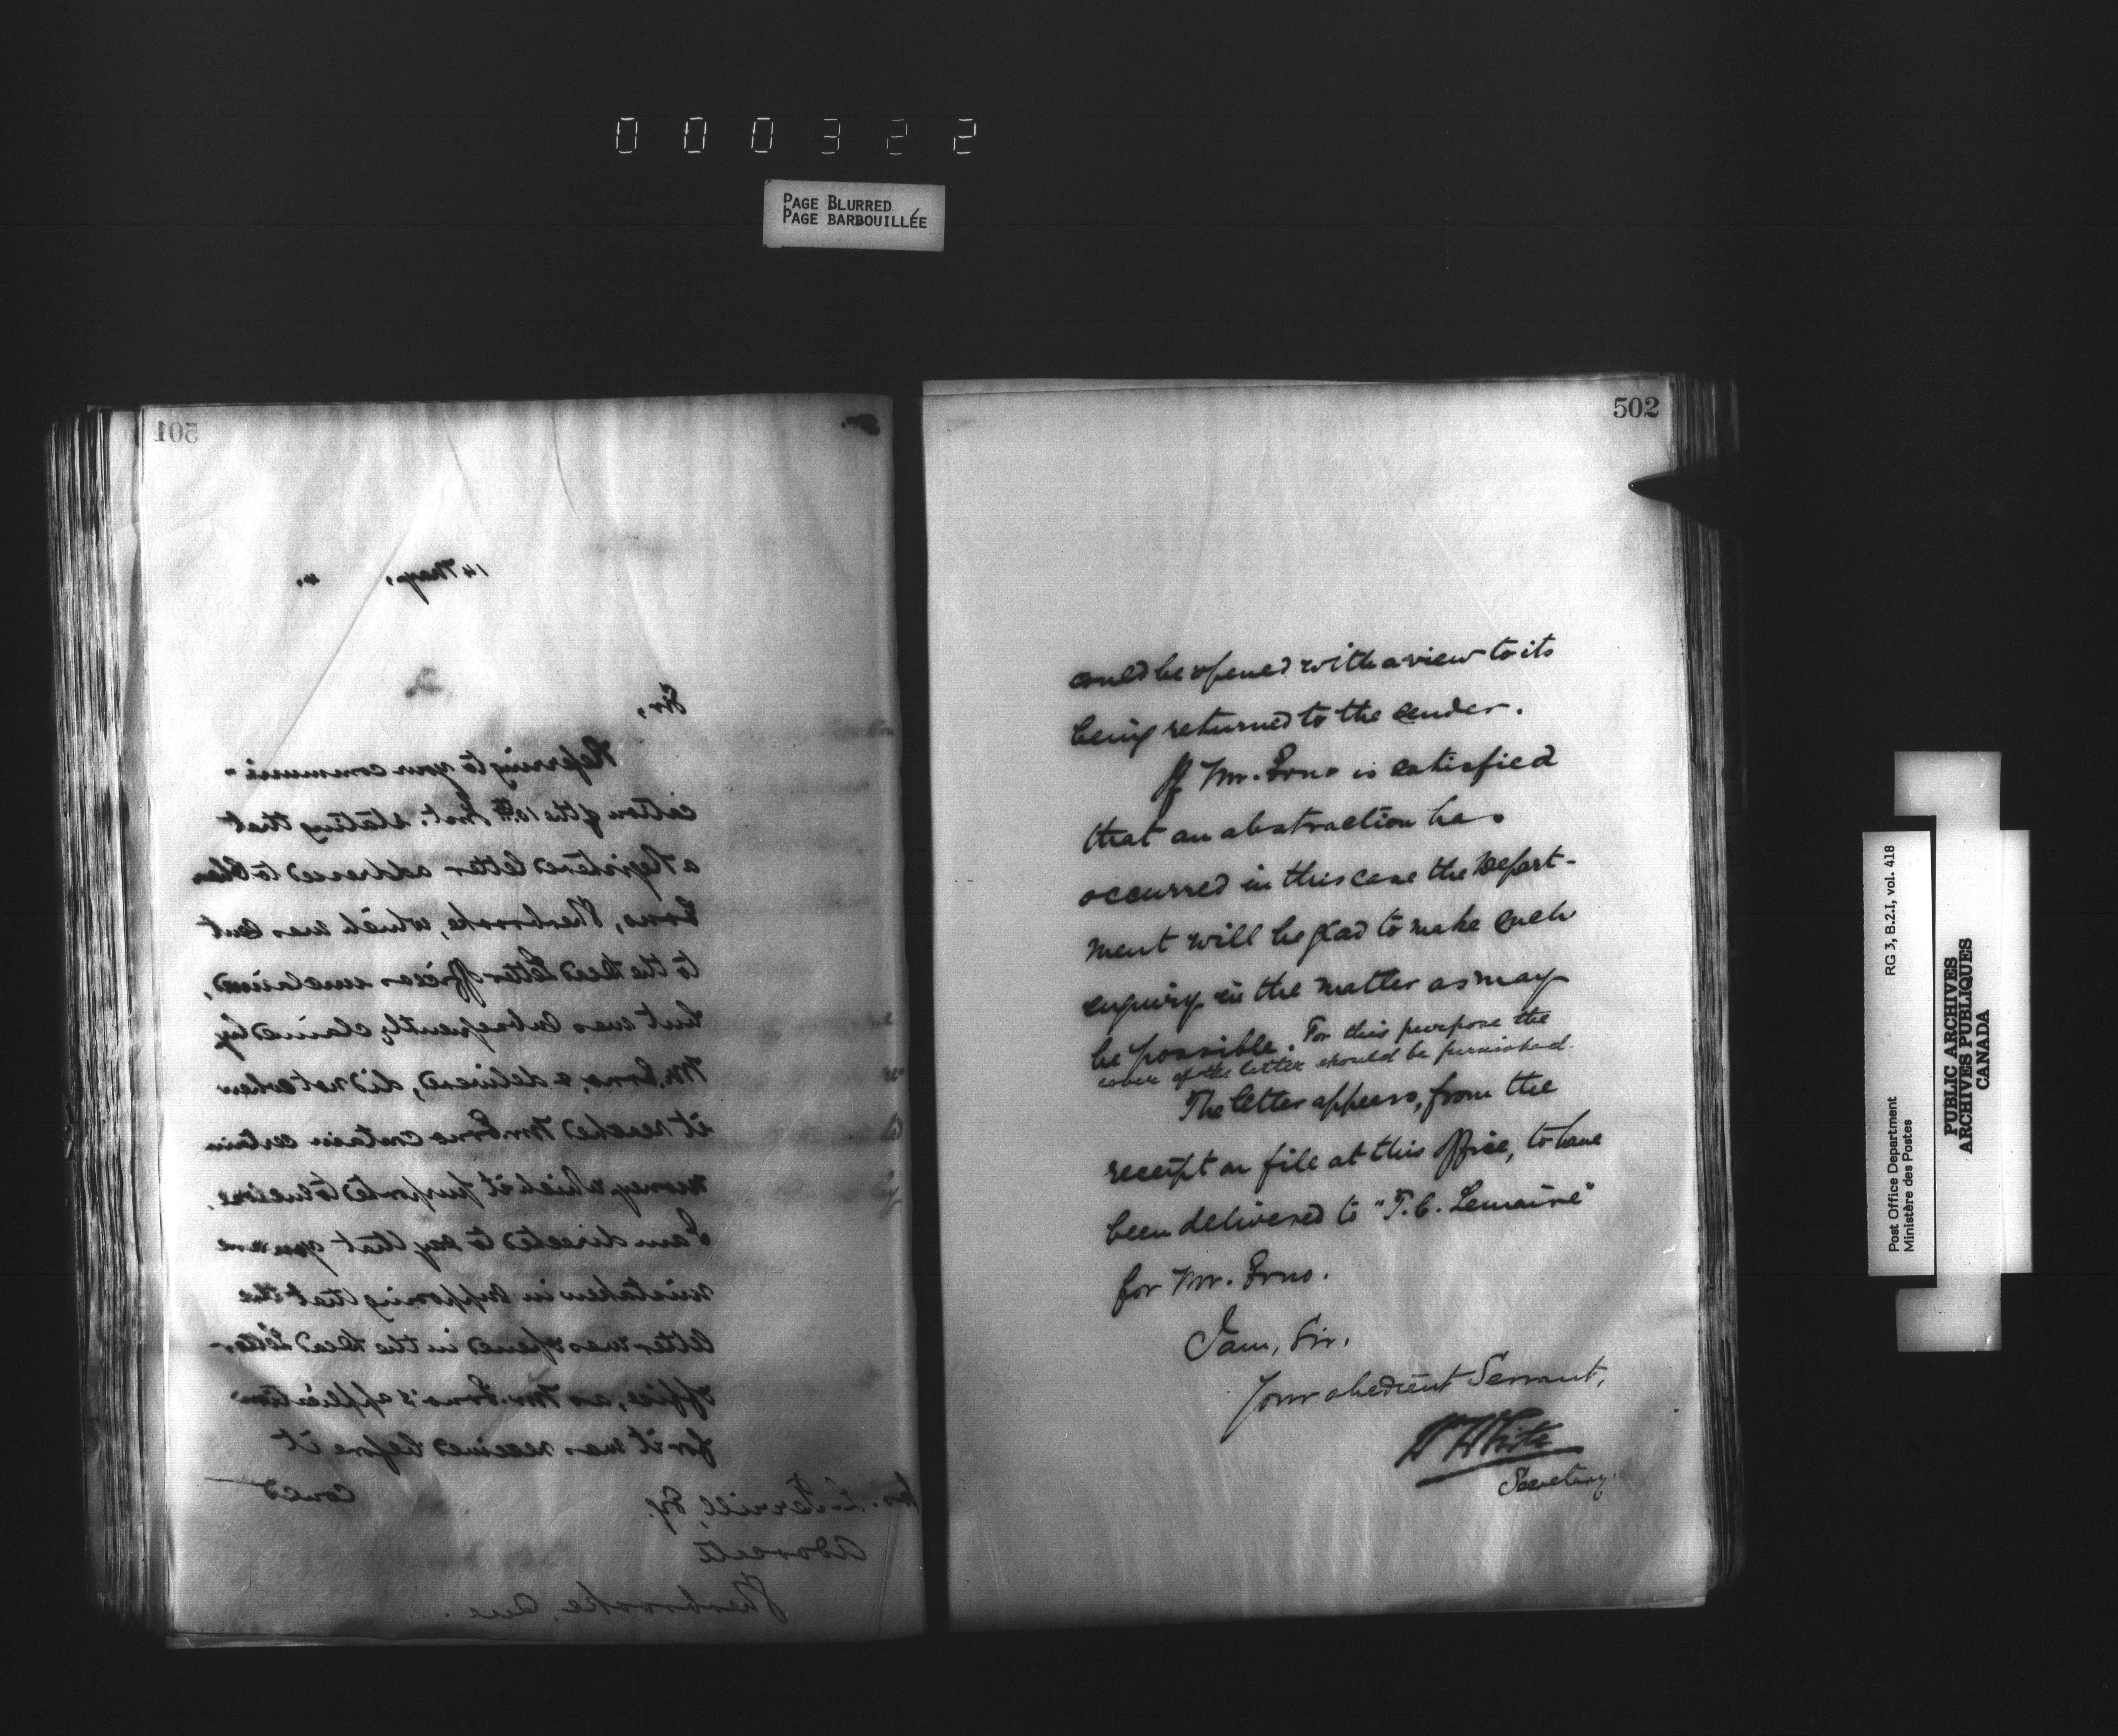 000322
PAGE BLURRED
PAGE BARBOUILLÉE
501
14 May, 4.
Sir,
Referring to your communi-
cation of the 10th Inst. stating that
a Registered letter addressed to
Erno, Sherbrooke, which was sent
to the Dead Letter Office as unclaimed,
but was subsequently claimed by
Mr. Erno & delivered, did not when
it reached Mr. Erno contain certain
money which it purported to enclose,
I am directed to say that you are
mistaken in supposing that the
letter was opened in the Dead Letter
Office, as Mr. Erno's application
for it was received before it
could
L. Terrill, Esq.
Advocate
Sherbrooke, Que.
502
could be opened with a view to its
being returned to the sender.
If Mr. Erno is satisfied
that an abstraction has
occurred in this case the Depart-
ment will be glad to make such
enquiry in the matter as may
be possible. For this purpose the
cover of the letter should be furnished.
The letter appears, from the
receipt on file at this Office, to have
been delivered to "T. C. Lemaire"
for Mr. Erno.
I am, Sir,
Your obedient Servant,
Wm White
Secretary.
Post Office Department RG 3, B.2.I, vol. 418
Ministère des Postes
PUBLIC ARCHIVES
ARCHIVES PUBLIQUES
CANADA